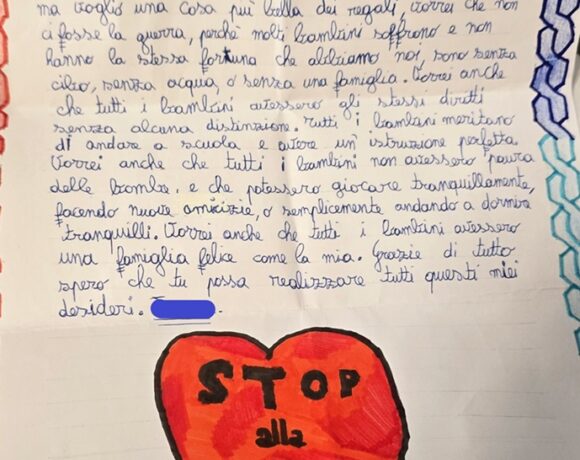 ma voglio una cosa più bella dei regali, vorrei che non
ci fosse la guerra, perchè molti bambini soffrono e non
hanno la stessa fortuna che abbiamo noi, sono senza
cibo, senza acqua, o senza una famiglia. Vorrei anche
che tutti i bambini avessero gli stessi diritti
senza alcuna distinzione. Tutti i bambini meritano
di andare a scuola e avere un'istruzione perfetta.
Vorrei anche che tutti i bambini non avessero paura
delle bombe. e che potessero giocare tranquillamente,
facendo nuove amicizie, o semplicemente andando a dormire
tranquilli. Vorrei anche che tutti i bambini avessero
una famiglia felice come la mia. Grazie di tutto
spero che tu possa realizzare tutti questi miei
desideri.
STOP
alla